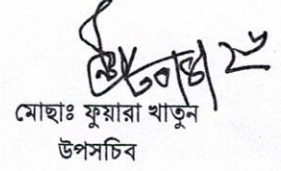 মোছাঃ ফুয়ারা খাতুন
উপসচিব